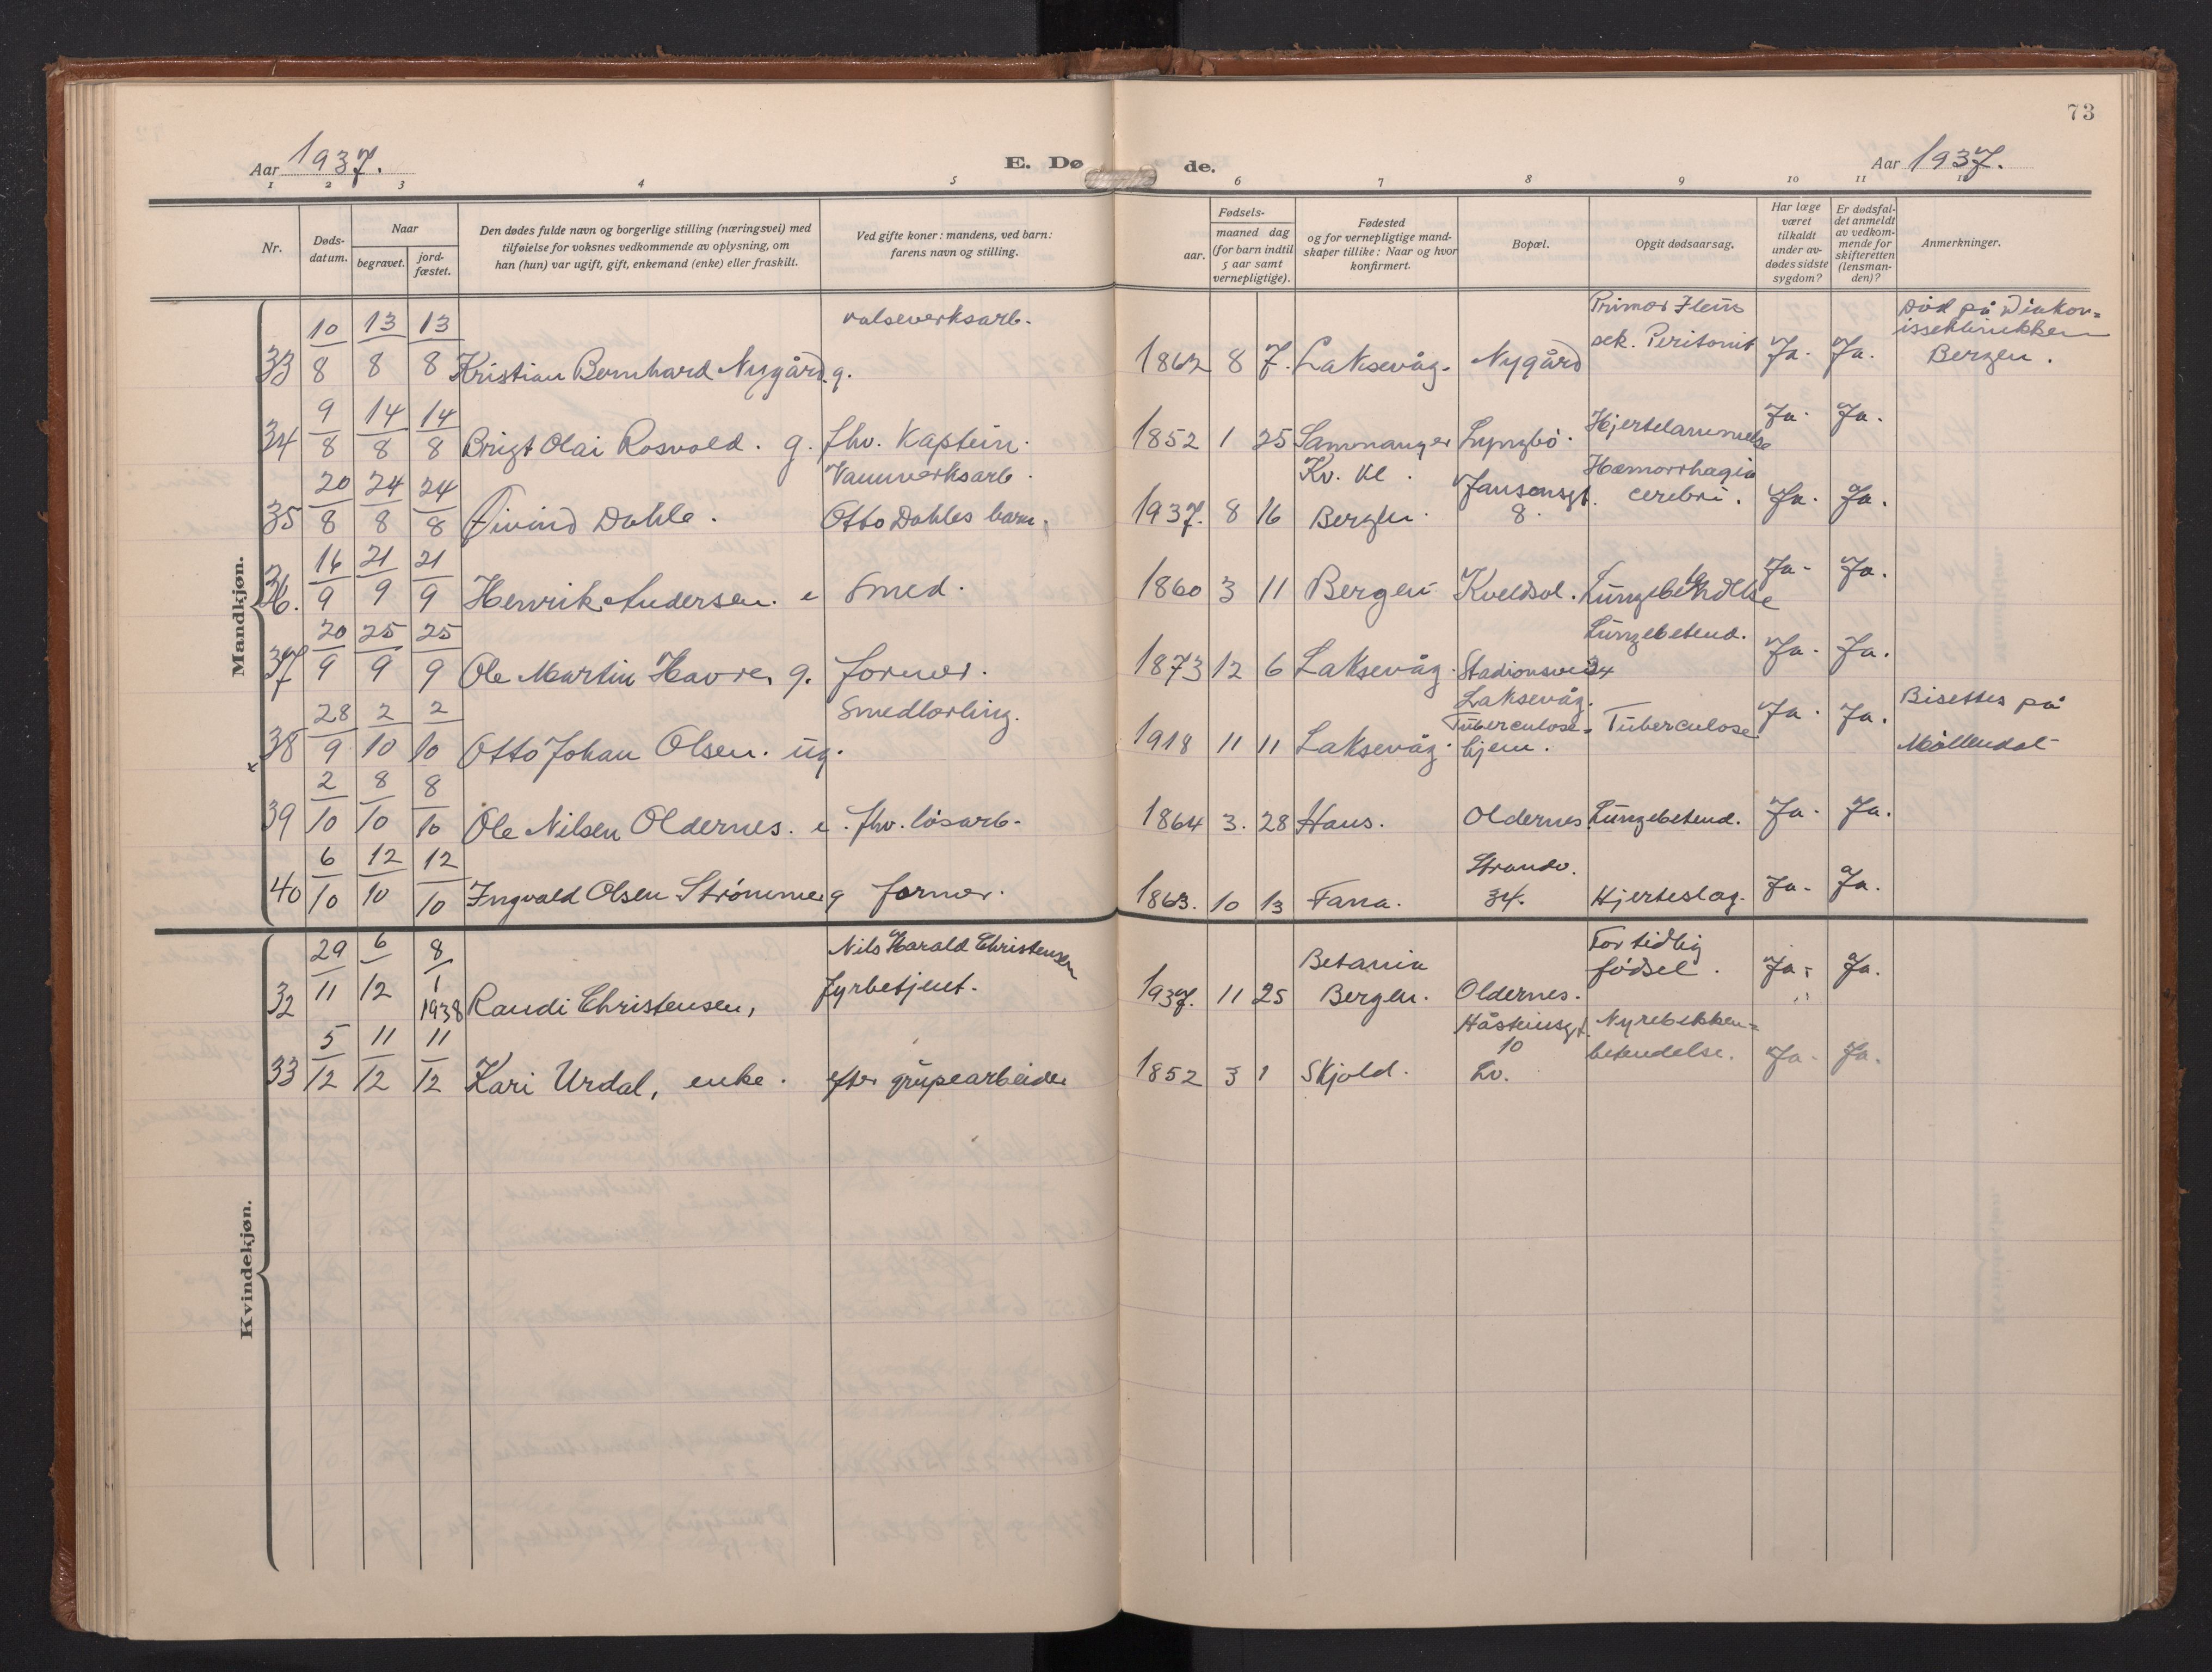 73
Aar 1937.
E. Dø de.
Aar 1937.
1 2 3 4 5 6 7 8 9 10 11 12
Nr.
Døds-
datum.
Naar
begravet.
jord-
fæstet.
Den dødes fulde navn og borgerlige stilling (næringsvei) med
tilføielse for voksnes vedkommende av oplysning, om
han (hun) var ugift, gift, enkemand (enke) eller fraskilt.
Ved gifte koner: mandens, ved barn:
farens navn og stilling.
Fødsels-
aar.
maaned dag
(for barn indtil
5 aar samt
vernepligtige).
Fødested
og for vernepligtige mand-
skaper tillike: Naar og hvor
konfirmert.
Bopæl.
Opgit dødsaarsag.
Har læge
været
tilkaldt
under av-
dødes sidste
sygdom?
Er dødsfal-
det anmeldt
av vedkom-
mende for
skifteretten
(lensman-
den)?
Anmerkninger.
Mandkjøn.
33 10/8 13/8 13/8 Kristian Bernhard Nygård g. valseverksarb. 1862 8 7. Laksevåg. Nygård Primær Ileus
sek. Peritonit Ja. Ja. Død på Diakon=
isseklinikken
Bergen.
34 9/8 14/8 14/8 Brigt Olai Rosvold. g. fhv. Kaptein. 1852 1 25 Samnanger Lyngbö. Hjertelammelse Ja. Ja.
35 20/8 24/8 24/8 Øivind Dahle. Vannverksarb.
Otto Dahles barn. 1937. 8 16 Kv. Kl.
Bergen. Jansonsgt.
8. Hæmorrhagia
cerebri. Ja. Ja.
36. 16/9 21/9 21/9 Henrik Andersen. e Smed. 1860 3 11 Bergen Kveldsol. Lungebetendelse Ja. Ja.
37 20/9 25/9 25/9 Ole Martin Havre, g. former. 1873 12 6 Laksevåg. Stadionsvei 24 Lungebetend. Ja. Ja.
38 28/9 2/10 2/10 Otto Johan Olsen. ug. Smedlærling. 1918 11 11 Laksevåg. Laksevåg.
Tuberculose=
hjem. Tuberculose Ja. Ja. Bisettes på
Møllendal
39 2/10 8/10 8/10 Ole Nilsen Oldernes. e. fhv. løsarb. 1864 3. 28 Haus. Oldernes Lungebetend. Ja. Ja.
40 6/10 12/10 12/10 Ingvald Olsen Strømme g former. 1863. 10 13 Fana. Strandv.
34. Hjerteslag. Ja. Ja.
Kvindekjøn.
32 29/11 6/12 8/1 1938 Randi Christensen, Nils Harald Christensen
fyrbetjent. 1937. 11 25 Betania
Bergen. Oldernes. For tidlig
fødsel. Ja. Ja.
33 5/12 11/12 11/12 Kari Urdal, enke. efter grubearbeider 1852 3 1 Skjold. Håsteinsgt.
10
Lv. Nyrebekken=
betendelse. Ja. Ja.